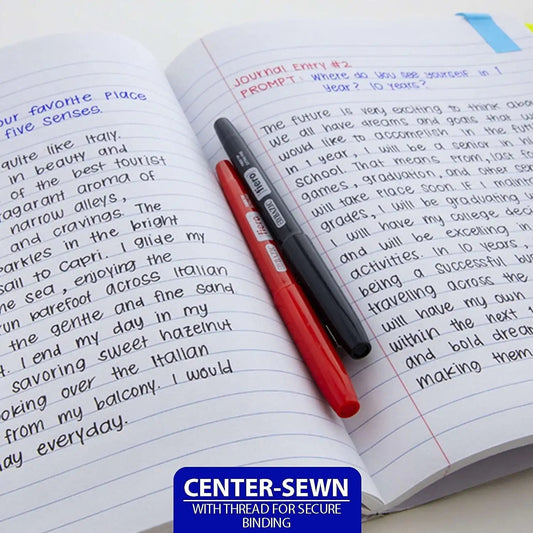 our favorite place
five senses.
quite like Italy.
in beauty and
of the best tourist
fragarant aroma of
narrow alleys,
and cravings. The
sparkles in the bright
sail to Capri. I glide my
the sea, enjoying the
run barefoot across Italian
the gentle and fine sand.
I end my day in my
savoring sweet hazelnut
looking over the Italian
from my balcony. I would
day everyday.
Journal Entry #2
PROMPT: Where do you see yourself in 1
Year? 10 years?
The future is very exciting to think about
We all have dreams and goals that w
would like to accomplish in the futur
in 1 year, I will be a senior in hi
school. That means prom, last fo
games, graduation, and other se
will take place soon. If I maint
grades, I will be graduating w
I will have my college decis
and will be excelling in
activities. In 10 years,
being a successful bus
traveling across the
will have my own
within the next 1
and bold dream
making them
Hero
Hero
CENTER-SEWN
WITH THREAD FOR SECURE
BINDING